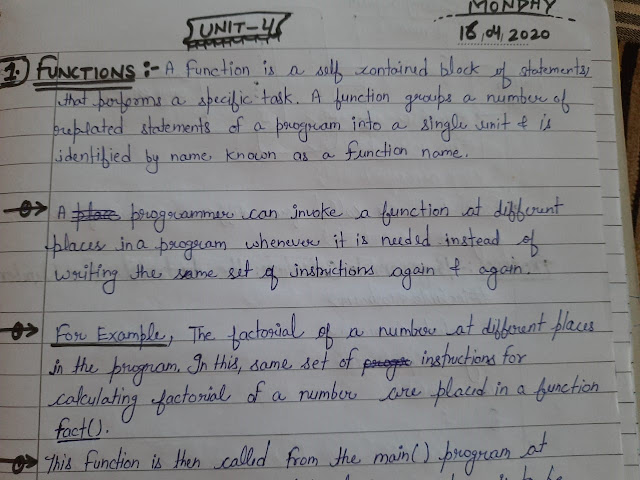 MONDAY
UNIT-4
18,04,2020
1. FUNCTIONS :- A Function is a self contained block of statements,
that performs a specific task. A function groups a number of
repeated statements of a program into a single unit & is
identified by name, known as a function name.
A place programmer can invoke a function at different
places in a program whenever it is needed instead of
writing the same set of instructions again & again.
For Example, The factorial of a number at different places
in the program. In this, same set of instructions for
calculating factorial of a number are placed in a function
fact().
This Function is then called from the main() program at
to be